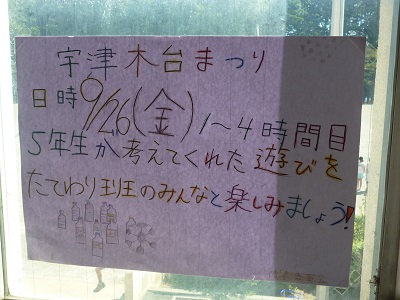 宇津木台まつり
日時9/26(金)1~4時間目
5年生が考えてくれた遊びを
たてわり班のみんなと楽しみましょう!